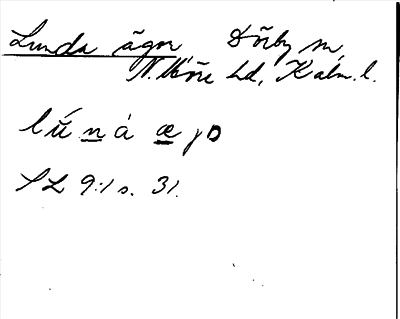 Lunda ägor Dörby sn,
N. Möre hd, Kalm. l.
lǘnȧ æjɒ
SL 9:1 s. 31.